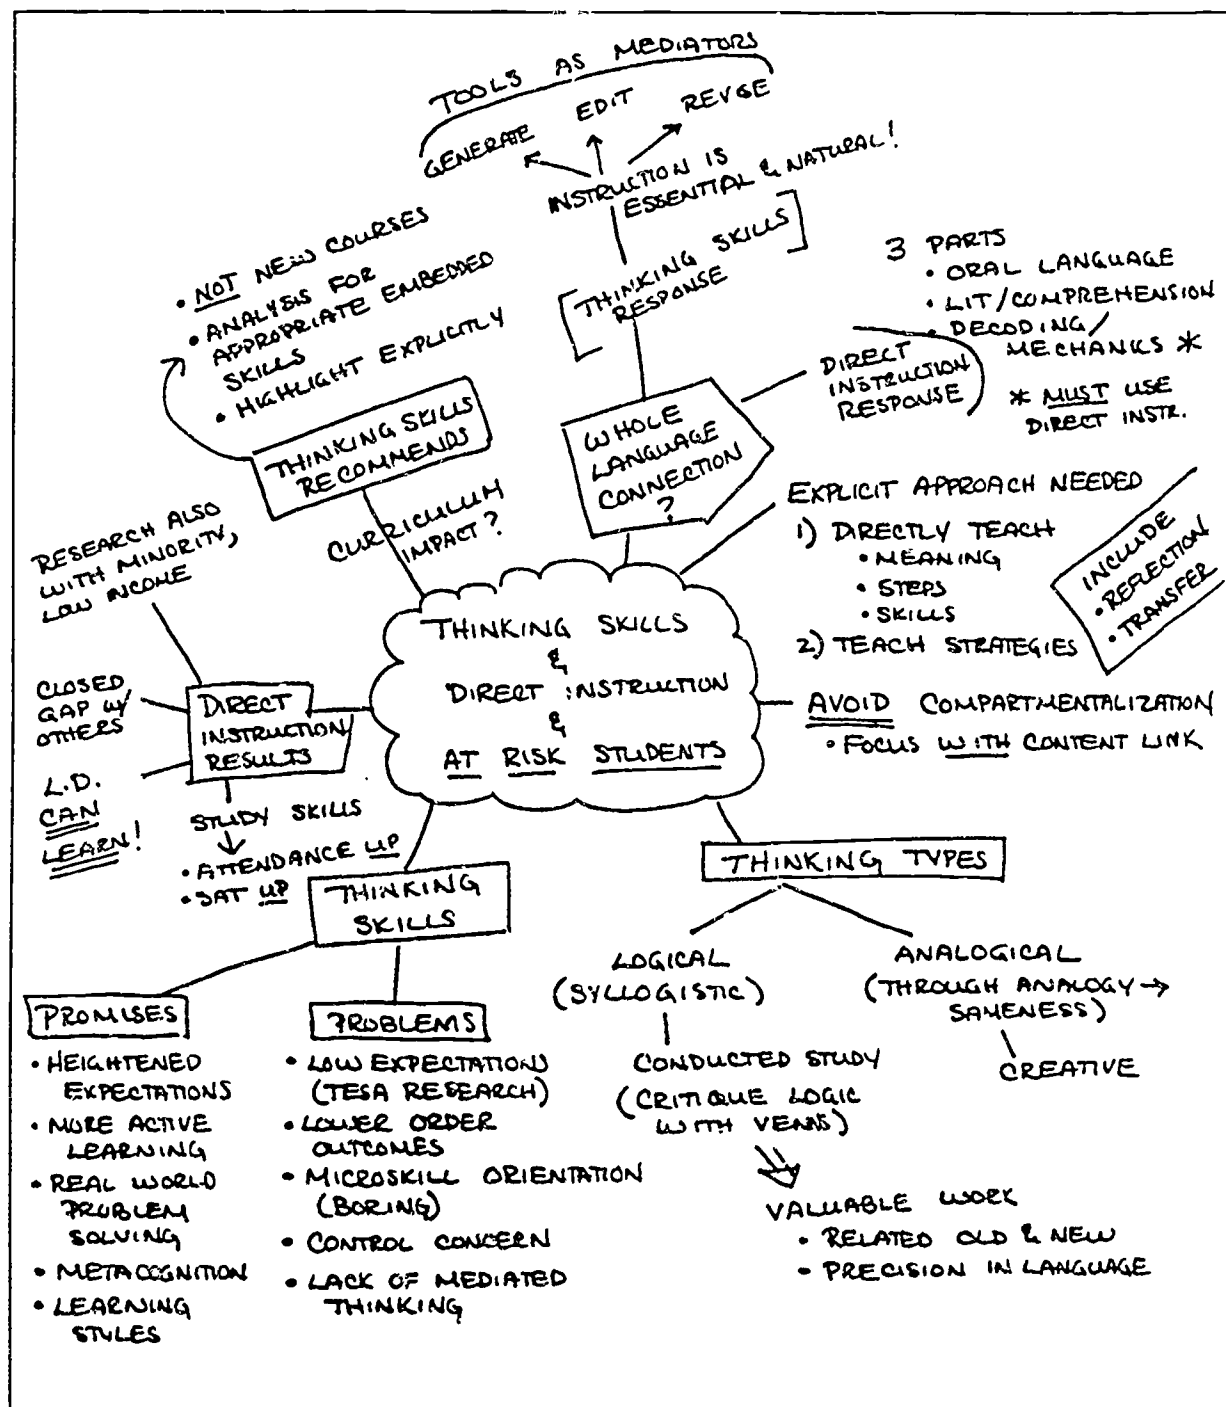 TOOLS AS MEDIATORS
GENERATE EDIT REVISE
INSTRUCTION IS
ESSENTIAL & NATURAL!
[THINKING SKILLS
RESPONSE]
• NOT NEW COURSES
• ANALYSIS FOR
APPROPRIATE EMBEDDED
SKILLS
• HIGHLIGHT EXPLICITLY
THINKING SKILLS
RECOMMENDS
CURRICULUM
IMPACT?
3 PARTS
• ORAL LANGUAGE
• LIT/COMPREHENSION
• DECODING/
MECHANICS *
* MUST USE
DIRECT INSTR.
DIRECT
INSTRUCTION
RESPONSE
WHOLE
LANGUAGE
CONNECTION
?
EXPLICIT APPROACH NEEDED
1) DIRECTLY TEACH
• MEANING
• STEPS
• SKILLS
2) TEACH STRATEGIES
INCLUDE
• REFLECTION
• TRANSFER
AVOID COMPARTMENTALIZATION
• FOCUS WITH CONTENT LINK
THINKING SKILLS
&
DIRECT INSTRUCTION
&
AT RISK STUDENTS
RESEARCH ALSO
WITH MINORITY,
LOW INCOME
CLOSED
GAP W/
OTHERS
DIRECT
INSTRUCTION
RESULTS
L.D.
CAN
LEARN!
STUDY SKILLS
• ATTENDANCE UP
• SAT UP
THINKING
SKILLS
PROMISES
• HEIGHTENED
EXPECTATIONS
• MORE ACTIVE
LEARNING
• REAL WORLD
PROBLEM
SOLVING
• METACOGNITION
• LEARNING
STYLES
PROBLEMS
• LOW EXPECTATIONS
(TESA RESEARCH)
• LOWER ORDER
OUTCOMES
• MICROSKILL ORIENTATION
(BORING)
• CONTROL CONCERN
• LACK OF MEDIATED
THINKING
THINKING TYPES
LOGICAL
(SYLLOGISTIC)
CONDUCTED STUDY
(CRITIQUE LOGIC
WITH VENNS)
VALUABLE WORK
• RELATED OLD & NEW
• PRECISION IN LANGUAGE
ANALOGICAL
(THROUGH ANALOGY →
SAMENESS)
CREATIVE